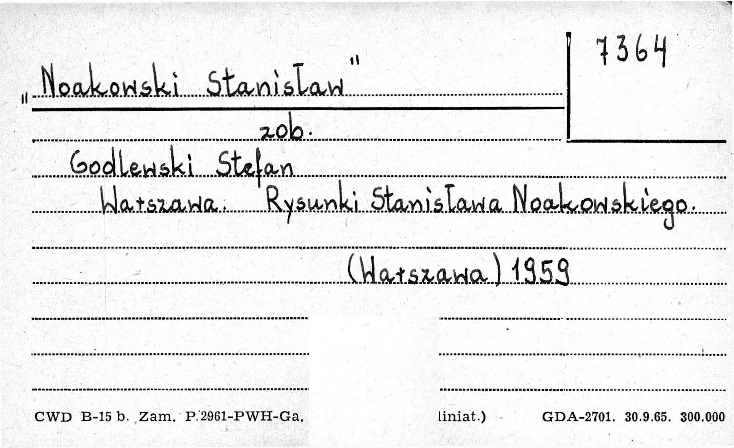 7364
"Noakowski Stanisław"
zob.
Godlewski Stefan
Warszawa. Rysunki Stanisława Noakowskiego.
(Warszawa) 1959
CWD B-15 b. Zam. P. 2961-PWH-Ga. liniat.) GDA-2701. 30.9.65. 300.000